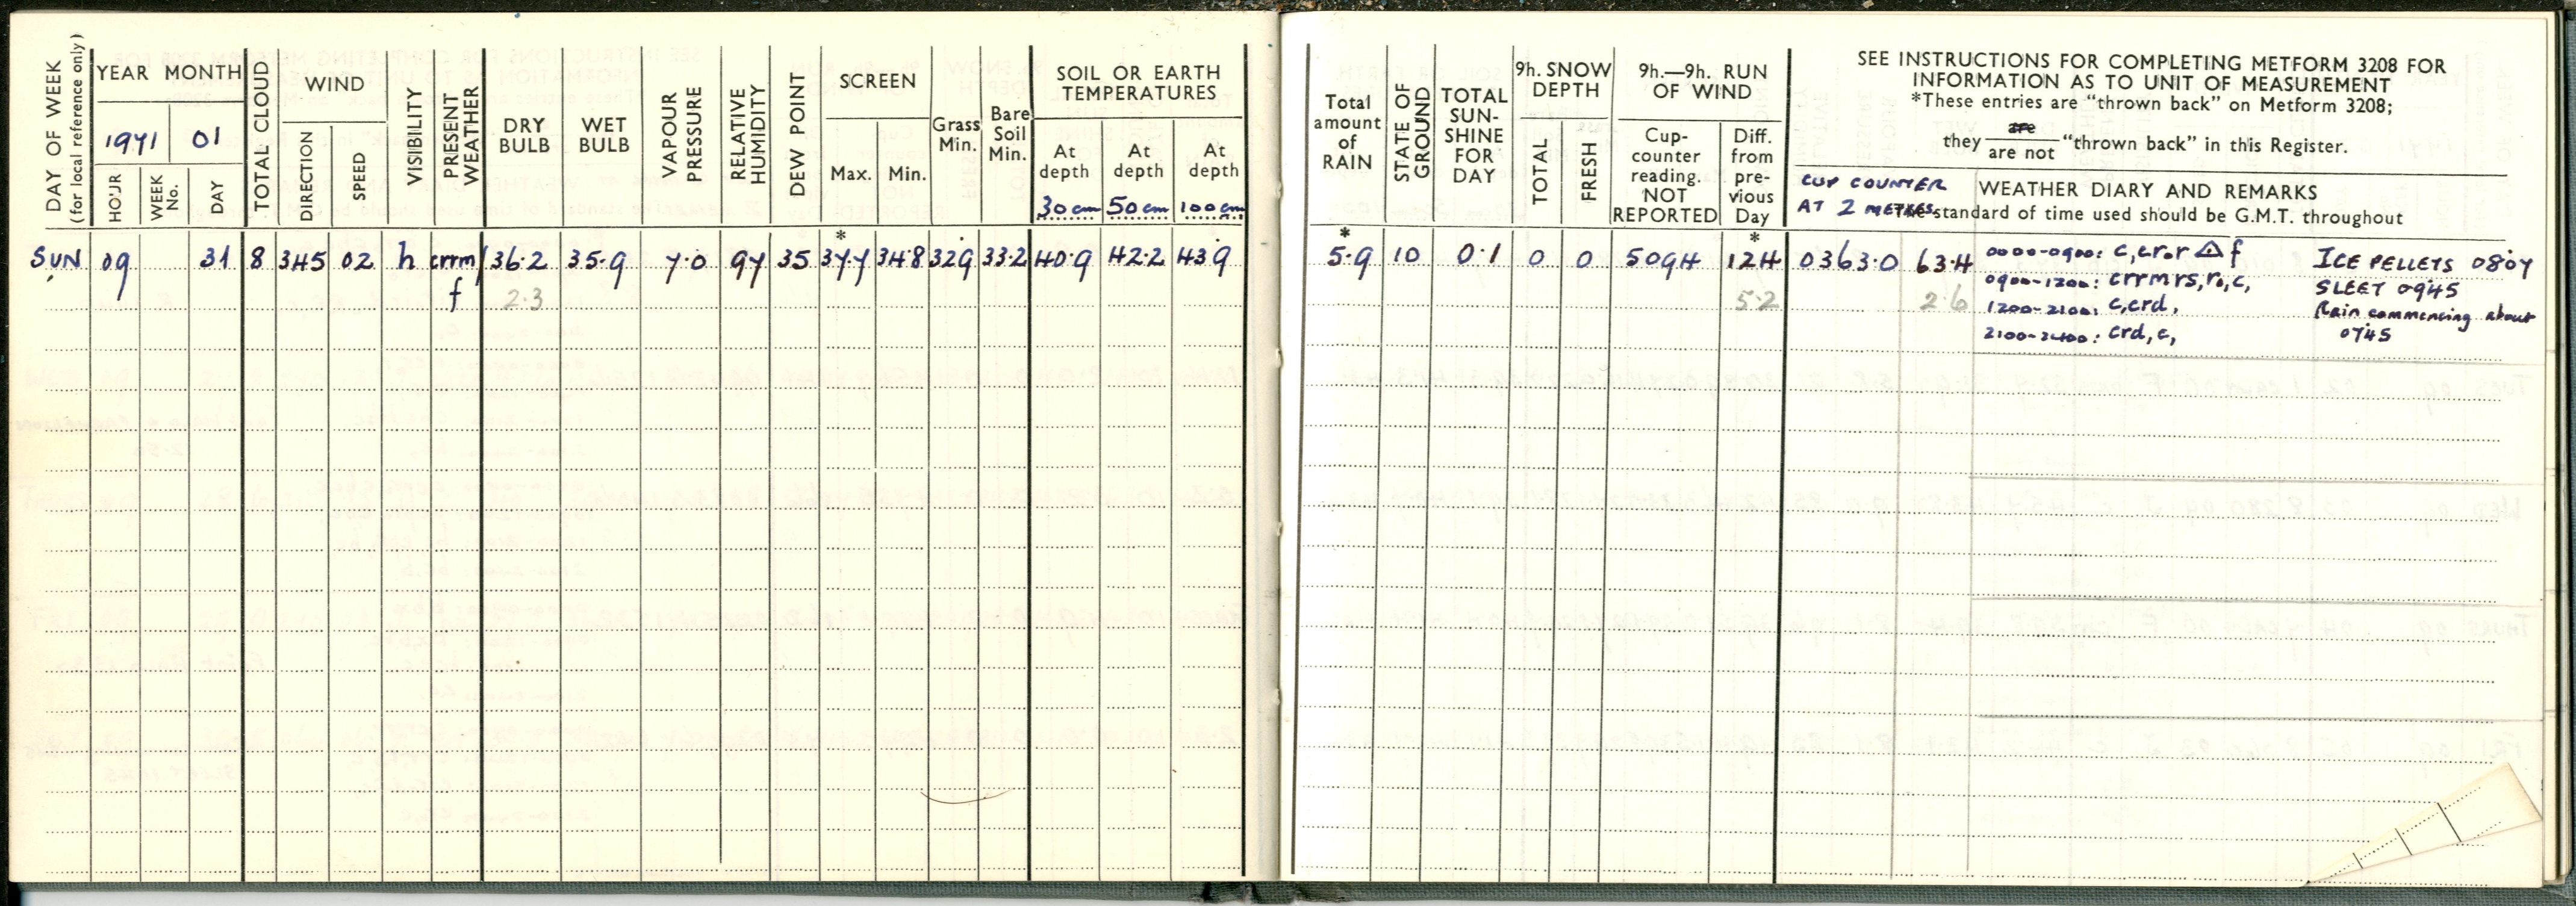 DAY OF WEEK
(for local reference only)
YEAR MONTH
1971 01
HOUR
WEEK No.
DAY
TOTAL CLOUD
WIND
DIRECTION
SPEED
VISIBILITY
PRESENT WEATHER
DRY BULB
WET BULB
VAPOUR PRESSURE
RELATIVE HUMIDITY
DEW POINT
SCREEN
Max. Min.
Grass Min.
Bare Soil Min.
SOIL OR EARTH
TEMPERATURES
At depth At depth At depth
30 cm 50 cm 100 cm
SUN 09 31 8 345 02 h crrm/ 36.2 35.9 7.0 97 35 37.7 34.8 32.9 33.2 40.9 42.2 43.9
f 2.3
Total amount of RAIN
STATE OF GROUND
TOTAL SUN-SHINE FOR DAY
9h. SNOW DEPTH
TOTAL
FRESH
9h.—9h. RUN OF WIND
Cup-counter reading. NOT REPORTED
Diff. from pre-vious Day
SEE INSTRUCTIONS FOR COMPLETING METFORM 3208 FOR
INFORMATION AS TO UNIT OF MEASUREMENT
*These entries are "thrown back" on Metform 3208;
they are / are not "thrown back" in this Register.
CUP COUNTER
AT 2 METRES
WEATHER DIARY AND REMARKS
The standard of time used should be G.M.T. throughout
* *
*
5.9 10 0.1 0 0 5094 124 0363.0 63.4 0000-0900: c,cr.r △ f ICE PELLETS 0807
0900-1200: crrmrs,r₀,c, SLEET 0945
5.2 2.6 1200-2100: c,crd, Rain commencing about
2100-2400: crd,c, 0745